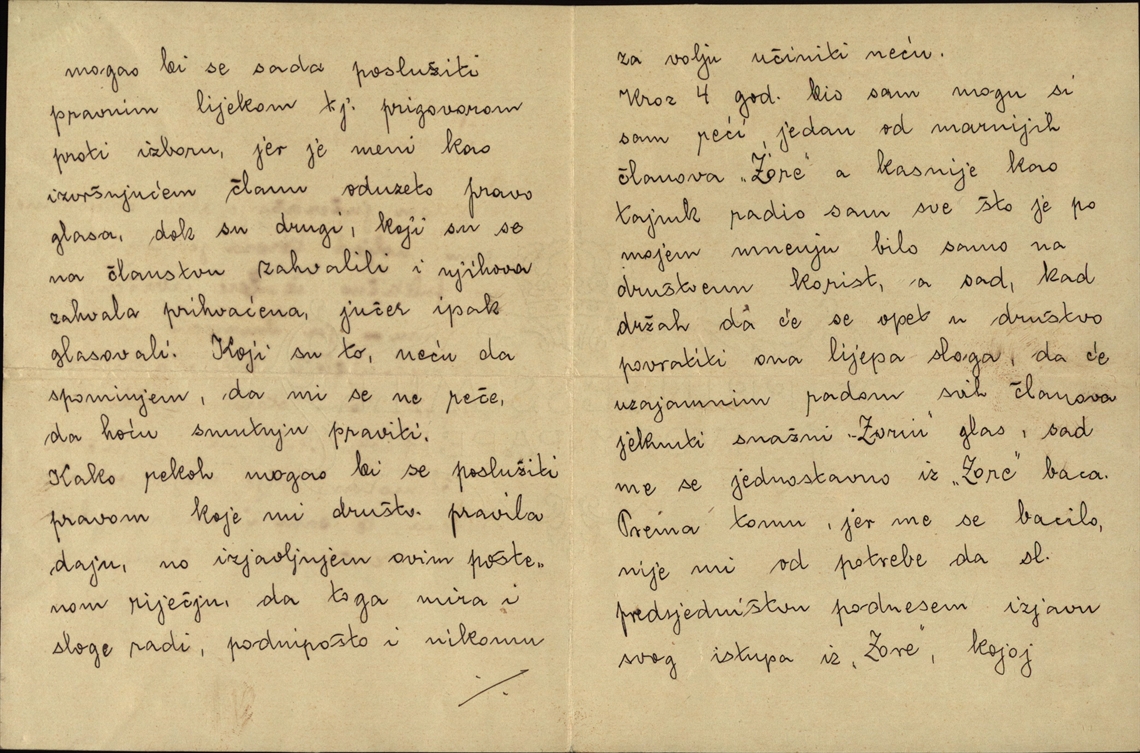 mogao bi se sada poslužiti
pravnim lijekom tj. prigovorom
proti izboru, jer je meni kao
izvršujućem članu oduzeto pravo
glasa, dok su drugi, koji su se
na članstvu zahvalili i njihova
zahvala prihvaćena, jučer ipak
glasovali. Koji su to, neću da
spominjem, da mi se ne reče,
da hoću smutnju praviti.
Kako rekoh mogao bi se poslužiti
pravom koje mi društv. pravila
daju, no izjavljujem ovim pošte„
nom riječju, da toga mira i
sloge radi, podnipošto i nikomu
./.
za volju učiniti neću.
Kroz 4 god. bio sam mogu si
sam reći jedan od marnijih
članova „Zore“ a kasnije kao
tajnik radio sam sve što je po
mojem mnenju bilo samo na
društvenu korist, a sad, kad
držah da će se opet u društvo
povratiti ona lijepa sloga, da će
uzajamnim radom svih članova
jeknuti snažni „Zorin“ glas, sad
me se jednostavno iz „Zore“ baca.
Prema tomu, jer me se bacilo,
nije mi od potrebe da sl.
predsjedništvu podnesem izjavu
svog istupa iz „Zore“, kojoj